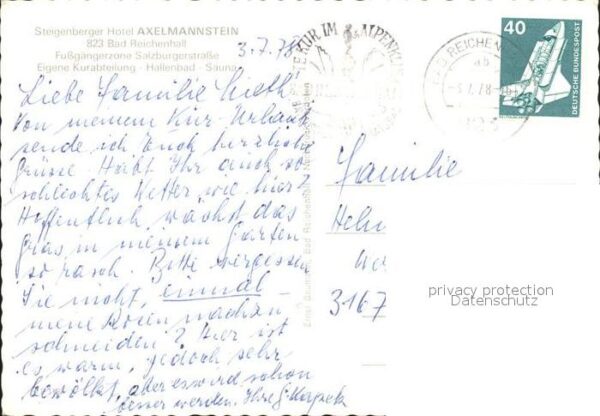 Steigenberger Hotel AXELMANNSTEIN
823 Bad Reichenhall
Fußgängerzone Salzburgerstraße
Eigene Kurabteilung - Hallenbad - Sauna
3.7.78
Liebe Familie
Von meinem Kur-Urlaub
sende ich Euch herzliche
Grüsse Habt Ihr auch so
schlechtes Wetter, wie hier?
Hoffentlich wächst das
Gras in meinem Garten
so rasch. Bitte vergessen
Sie nicht, einmal
meine Rosen nachzu
schneiden? Hier ist
es warm, jedoch sehr
bewölkt, aber es wird schon
besser werden. Ihre
KUR IM
ALPENKL
BAD REICHEN
40
DEUTSCHE BUNDESPOST
Familie
Helm
3167
privacy protection
Datenschutz